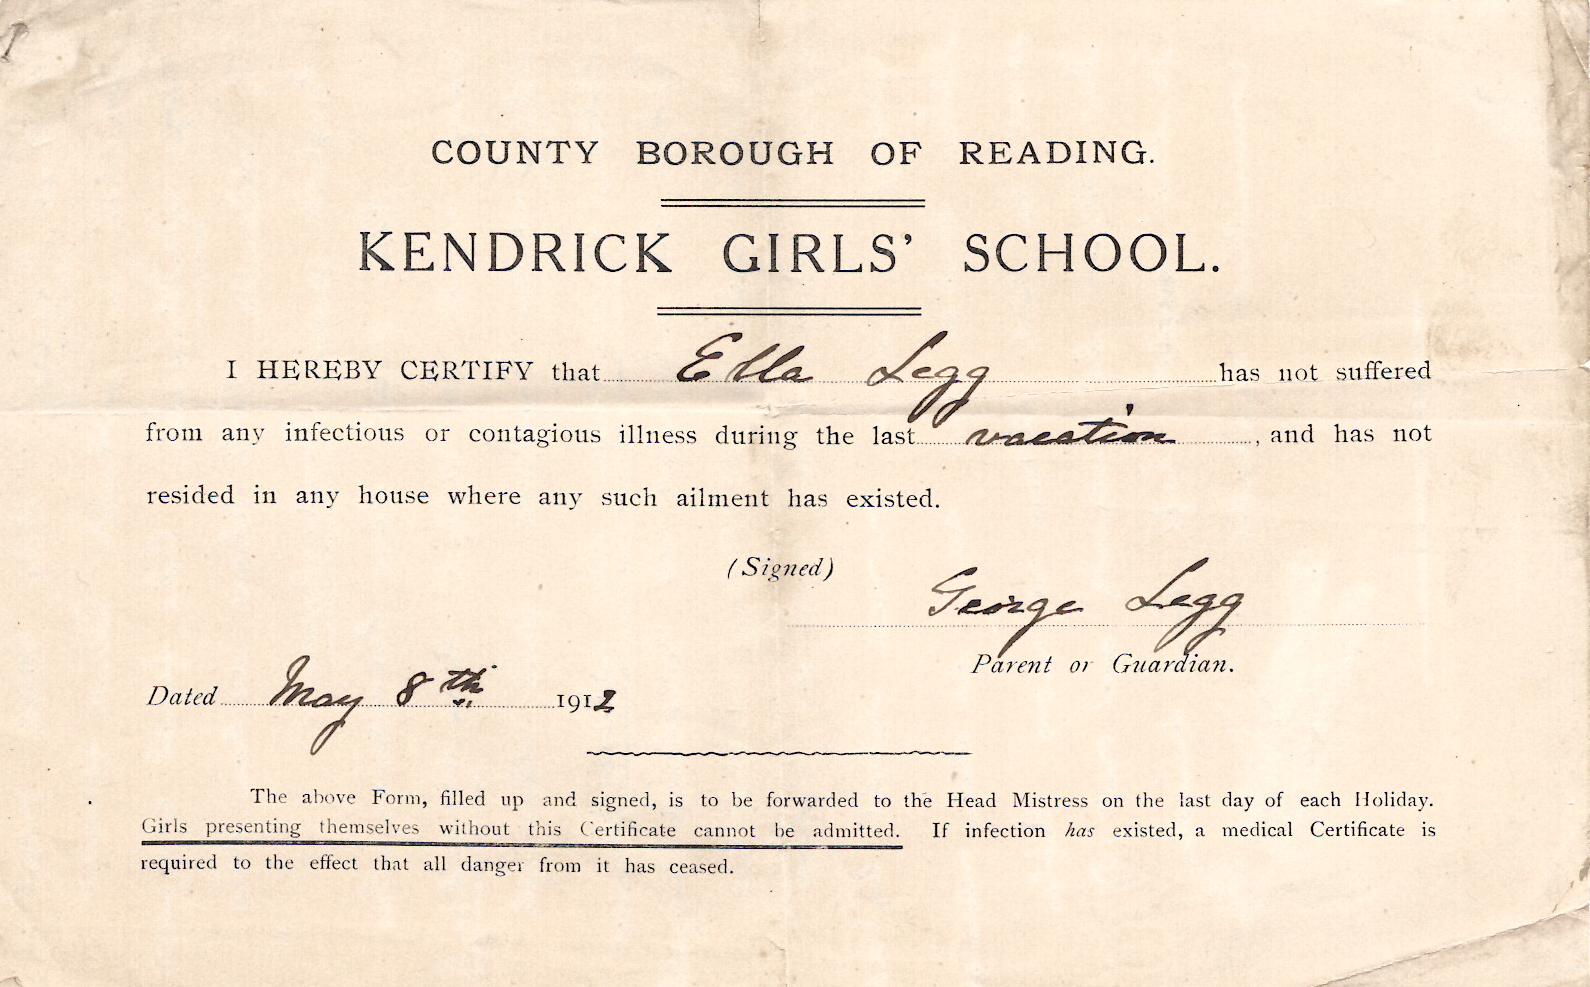 COUNTY BOROUGH OF READING.
KENDRICK GIRLS' SCHOOL.
I HEREBY CERTIFY that Ella Legg has not suffered
from any infectious or contagious illness during the last vacation, and has not
resided in any house where any such ailment has existed.
(Signed)
George Legg
Parent or Guardian.
Dated May 8th 1912
The above Form, filled up and signed, is to be forwarded to the Head Mistress on the last day of each Holiday.
Girls presenting themselves without this Certificate cannot be admitted. If infection has existed, a medical Certificate is
required to the effect that all danger from it has ceased.